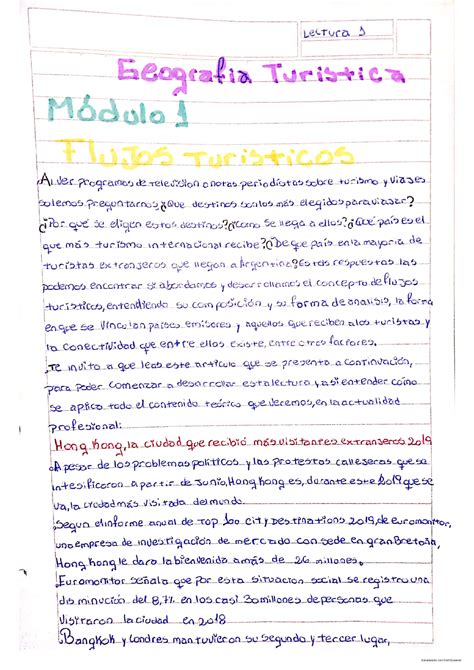 Lectura 1
Geografia Turistica
Módulo 1
Flujos Turisticos
Al ver programas de television o notas periodistas sobre turismo y viajes
solemos preguntarnos ¿Que destinos son los más elegidos para viajar?
¿Por qué se eligen estos destinos? ¿Como se llega a ellos? ¿Qué país es el
que más turismo internacional recibe? ¿De que país en la mayoria de
turistas extranjeros que llegan a Argentina? Estas respuestas las
podemos encontrar si abordamos y desarrollamos el concepto de flujos
turisticos, entendiendo su composición y su forma de analisis, la forma
en que se vinculan países emisores y aquellos que reciben a los turistas y
la conectividad que entre ellos existe, entre otros factores.
Te invito a que leas este articulo que se presenta a continuación,
para poder comenzar a desarrollar esta lectura y asi entender como
se aplica todo el contenido teórico que veremos, en la actualidad
profesional:
Hong Kong, la ciudad que recibió más visitantes extranjeros 2019
A pesar de los problemas politicos y las protestas callejeras que se
intesificaron a partir de Junio, Hong Kong es, durante este 2019 que se
va, la ciudad más visitada del mundo.
Segun el informe anual de Top 100 City Destinations 2019, de euromonitor,
una empresa de investigación de mercado con sede en gran Bretaña,
Hong Kong le daro la bienvenida a más de 26 millones.
Euromonitor señala que por esta situacion social se registro una
disminución del 8,7% en los casi 30 millones de personas que
visitaron la ciudad en 2018
Bangkok y Londres mantuvieron su segundo y tercer lugar,